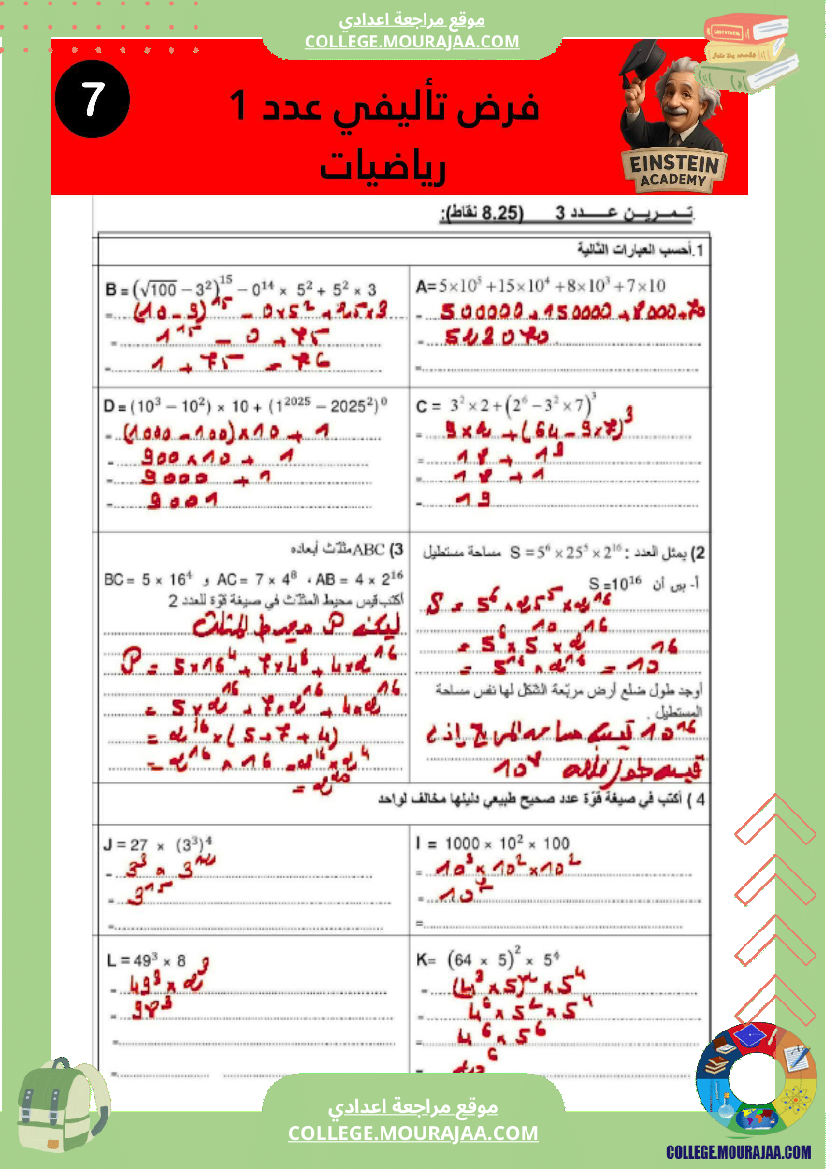 موقع مراجعة اعدادي
COLLEGE.MOURAJAA.COM
7
فرض تأليفي عدد 1
رياضيات
EINSTEIN
ACADEMY
تـمـريـن عـدد 3 (8.25 نقاط):
1.أحسب العبارات التالية
A=5×10⁵+15×10⁴+8×10³+7×10
= 500000+150000+8000+70
B = (√100 − 3²)¹⁵ − 0¹⁴ × 5² + 5² × 3
= (10-9)¹⁵ - 0×5² + 25×3
= 1¹⁵ - 0 + 75
= 1 + 75 = 76
C = 3²×2+(2⁶−3²×7)³
= 9×2 + (64-9×7)³
= 18 + 1³
= 18 + 1
= 19
D = (10³ − 10²) × 10 + (1²⁰²⁵ − 2025²)⁰
= (1000-100)×10 + 1
= 900×10 + 1
= 9000 + 1
= 9001
2) يمثل العدد : S = 5⁶ × 25⁵ × 2¹⁶ مساحة مستطيل
أ- بين أن S =10¹⁶
S = 5⁶ × 25⁵ × 2¹⁶
= 5⁶ × 5¹⁰ × 2¹⁶
= 5¹⁶ × 2¹⁶ = 10¹⁶
أوجد طول ضلع أرض مربّعة الشكل لها نفس مساحة
المستطيل .
10¹⁶ قيس مساحة المربع إذن
قيس طول ضلعه 10⁸
3) ABC مثلّث أبعاده
BC = 5 × 16⁴ و AC = 7 × 4⁸ ، AB = 4 × 2¹⁶
أكتب قيس محيط المثلّث في صيغة قوّة للعدد 2
ليكن P محيط المثلث
P = 5×16⁴ + 7×4⁸ + 4×2¹⁶
= 5×2¹⁶ + 7×2¹⁶ + 4×2¹⁶
= 2¹⁶ × (5+7+4)
= 2¹⁶ × 16 = 2¹⁶ × 2⁴
= 2²⁰
4 ) أكتب في صيغة قوّة عدد صحيح طبيعي دليلها مخالف لواحد
I = 1000 × 10² × 100
= 10³ × 10² × 10²
= 10⁷
J = 27 × (3³)⁴
= 3³ × 3¹²
= 3¹⁵
K= (64 × 5)² × 5⁴
= (4³×5)² × 5⁴
= 4⁶ × 5² × 5⁴
= 4⁶ × 5⁶
L = 49³ × 8
= 49³ × 2³
= 98³
موقع مراجعة اعدادي
COLLEGE.MOURAJAA.COM
COLLEGE.MOURAJAA.COM